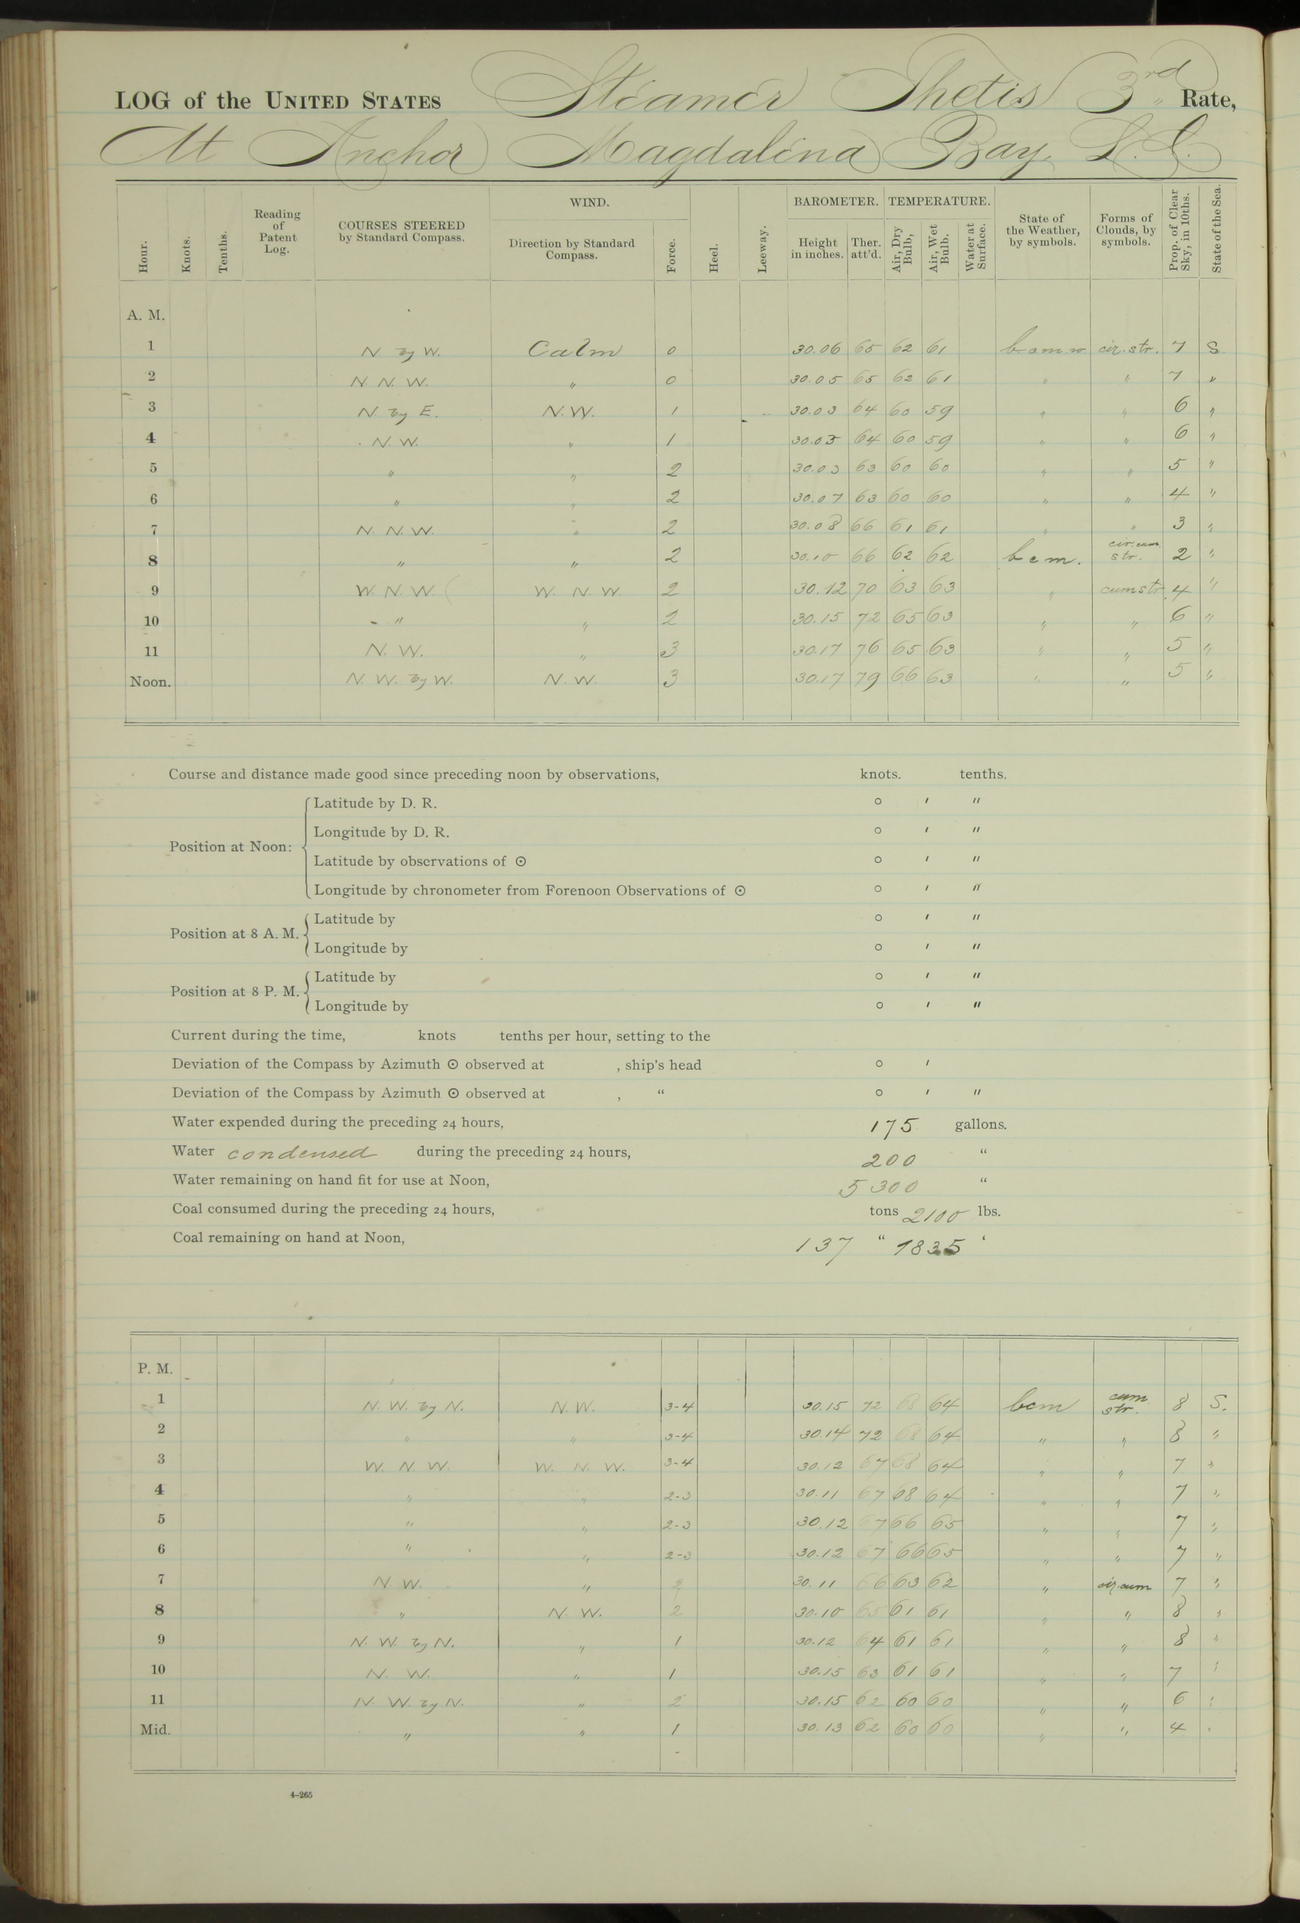 LOG of the UNITED STATES Steamer Thetis 3rd Rate,
At Anchor Magdalena Bay, L. C.
Hour. Knots. Tenths. Reading of Patent Log. COURSES STEERED by Standard Compass. WIND. Direction by Standard Compass. Force. Heel. Leeway. BAROMETER. Height in inches. Ther. att'd. TEMPERATURE. Air, Dry Bulb, Air, Wet Bulb. Water at Surface. State of the Weather, by symbols. Forms of Clouds, by symbols. Prop. of Clear Sky, in 10ths. State of the Sea.
A. M.
1 N by W. Calm 0 30.06 65 62 61 cir. str. 7 S
2 N. N. W. " 0 30.05 65 62 61 " " 7 "
3 N by E. N.W. 1 30.03 64 60 59 " " 6 "
4 N. W. " 1 30.03 64 60 59 " " 6 "
5 " " 2 30.03 63 60 60 " " 5 "
6 " " 2 30.07 63 60 60 " " 4 "
7 N. N. W. " 2 30.08 66 61 61 " " 3 "
8 " " 2 30.10 66 62 62 b c m. cir. cum str. 2 "
9 W. N. W. W. N. W. 2 30.12 70 63 63 " cum str. 4 "
10 " " 2 30.15 72 65 63 " " 6 "
11 N. W. " 3 30.17 76 65 63 " " 5 "
Noon. N. W. by W. N. W. 3 30.17 79 66 63 " " 5 "
Course and distance made good since preceding noon by observations, knots. tenths.
Position at Noon: Latitude by D. R. ° ′ ″
Longitude by D. R. ° ′ ″
Latitude by observations of ⊙ ° ′ ″
Longitude by chronometer from Forenoon Observations of ⊙ ° ′ ″
Position at 8 A. M. Latitude by ° ′ ″
Longitude by ° ′ ″
Position at 8 P. M. Latitude by ° ′ ″
Longitude by ° ′ ″
Current during the time, knots tenths per hour, setting to the
Deviation of the Compass by Azimuth ⊙ observed at , ship's head ° ′
Deviation of the Compass by Azimuth ⊙ observed at , " ° ′ ″
Water expended during the preceding 24 hours, 175 gallons.
Water condensed during the preceding 24 hours, 200 "
Water remaining on hand fit for use at Noon, 5300 "
Coal consumed during the preceding 24 hours, tons 2100 lbs.
Coal remaining on hand at Noon, 137 " 1835 "
P. M.
1 N. W. by N. N. W. 3-4 30.15 72 68 64 bcm cum str. 8 S.
2 " " 3-4 30.14 72 68 64 " " 8 "
3 W. N. W. W. N. W. 3-4 30.12 67 68 64 " " 7 "
4 " " 2-3 30.11 67 68 64 " " 7 "
5 " " 2-3 30.12 67 66 65 " " 7 "
6 " " 2-3 30.12 67 66 65 " " 7 "
7 N. W. " 2 30.11 66 63 62 " cir cum 7 "
8 " N. W. 2 30.10 65 61 61 " " 8 "
9 N. W. by N. " 1 30.12 64 61 61 " " 8 "
10 N. W. " 1 30.15 63 61 61 " " 7 "
11 N. W. by N. " 2 30.15 62 60 60 " " 6 "
Mid. " " 1 30.13 62 60 60 " " 4 "
4-265